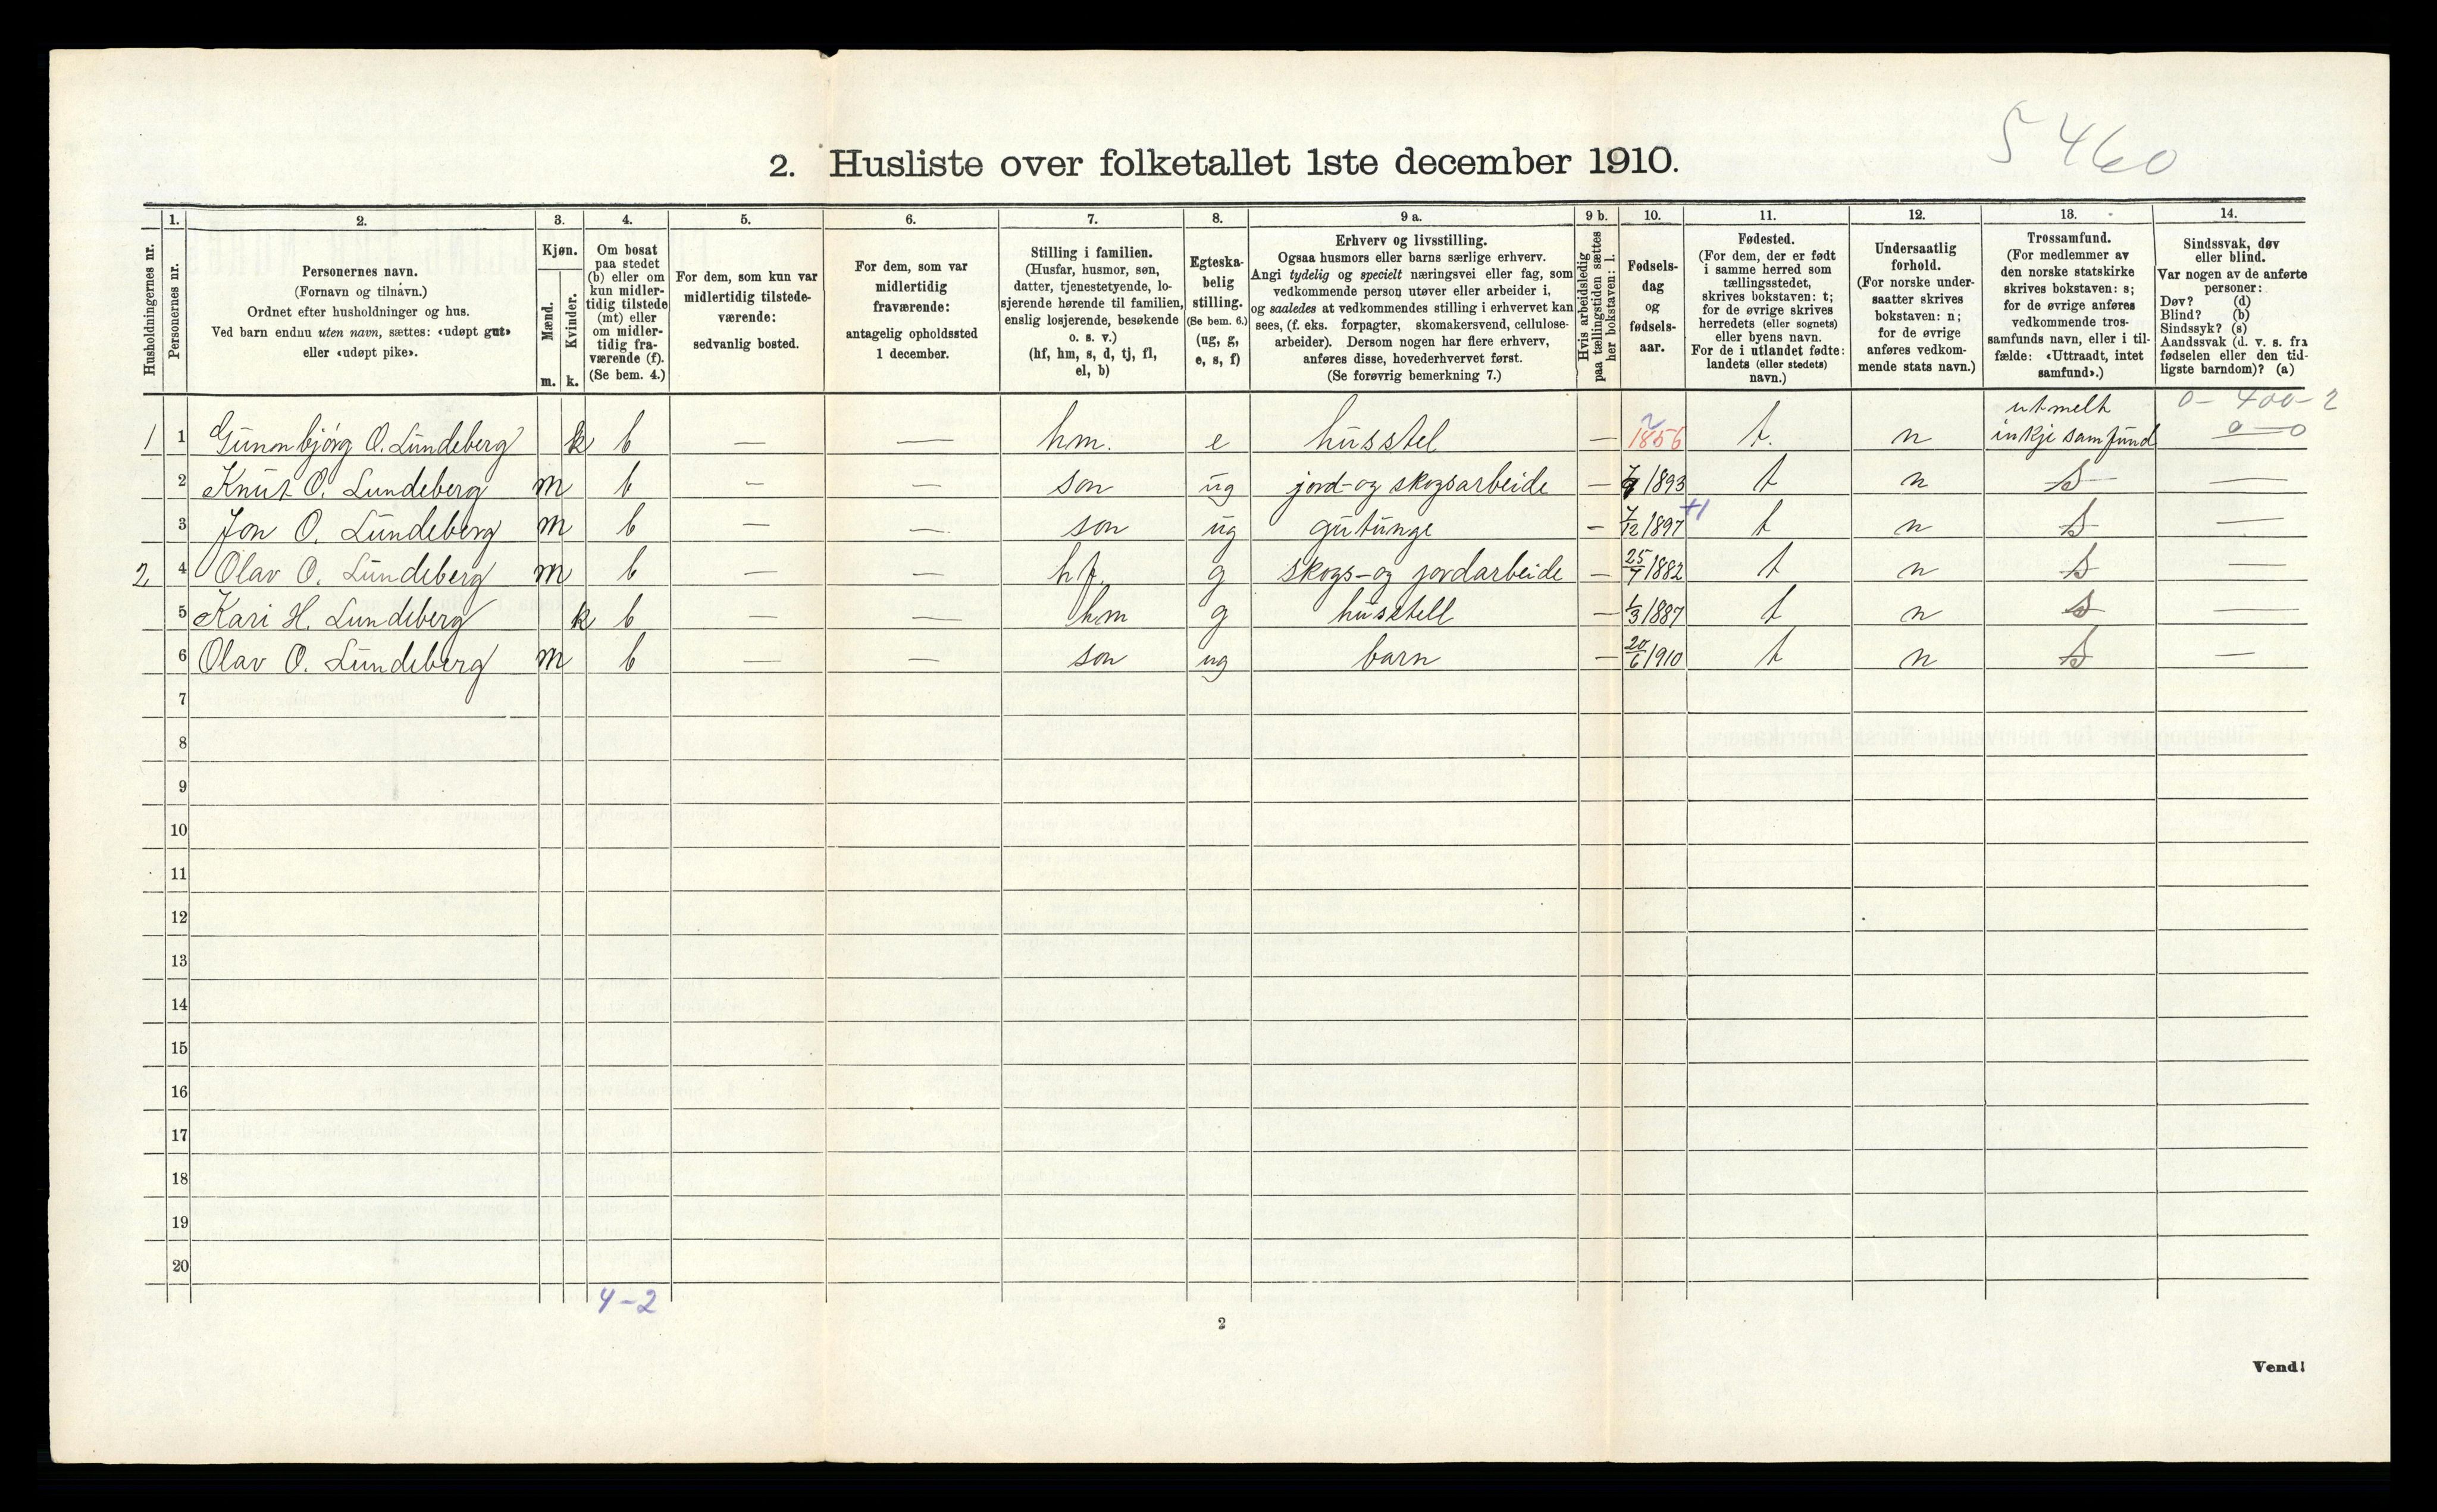 5460
2. Husliste over folketallet 1ste december 1910.
1. 2. 3. 4. 5. 6. 7. 8. 9 a. 9 b. 10. 11. 12. 13. 14.
Husholdningernes nr.
Personernes nr.
Personernes navn.
(Fornavn og tilnavn.)
Ordnet efter husholdninger og hus.
Ved barn endnu uten navn, sættes: «udøpt gut»
eller «udøpt pike».
Kjøn.
Mænd.
Kvinder.
m. k.
Om bosat
paa stedet
(b) eller om
kun midler-
tidig tilstede
(mt) eller
om midler-
tidig fra-
værende (f).
(Se bem. 4.)
For dem, som kun var
midlertidig tilstede-
værende:
sedvanlig bosted.
For dem, som var
midlertidig
fraværende:
antagelig opholdssted
1 december.
Stilling i familien.
(Husfar, husmor, søn,
datter, tjenestetyende, lo-
sjerende hørende til familien,
enslig losjerende, besøkende
o. s. v.)
(hf, hm, s, d, tj, fl,
el, b)
Egteska-
belig
stilling.
(Se bem. 6.)
(ug, g,
e, s, f)
Erhverv og livsstilling.
Ogsaa husmors eller barns særlige erhverv.
Angi tydelig og specielt næringsvei eller fag, som
vedkommende person utøver eller arbeider i,
og saaledes at vedkommendes stilling i erhvervet kan
sees, (f. eks. forpagter, skomakersvend, cellulose-
arbeider). Dersom nogen har flere erhverv,
anføres disse, hovederhvervet først.
(Se forøvrig bemerkning 7.)
Hvis arbeidsledig
paa tællingstiden sættes
her bokstaven: l.
Fødsels-
dag
og
fødsels-
aar.
Fødested.
(For dem, der er født
i samme herred som
tællingsstedet,
skrives bokstaven: t;
for de øvrige skrives
herredets (eller sognets)
eller byens navn.
For de i utlandet fødte:
landets (eller stedets)
navn.)
Undersaatlig
forhold.
(For norske under-
saatter skrives
bokstaven: n;
for de øvrige
anføres vedkom-
mende stats navn.)
Trossamfund.
(For medlemmer av
den norske statskirke
skrives bokstaven: s;
for de øvrige anføres
vedkommende tros-
samfunds navn, eller i til-
fælde: «Uttraadt, intet
samfund».)
Sindssvak, døv
eller blind.
Var nogen av de anførte
personer:
Døv? (d)
Blind? (b)
Sindssyk? (s)
Aandssvak (d. v. s. fra
fødselen eller den tid-
ligste barndom)? (a)
utmelt 0 - 400 - 2
1 1 Gunnbjörg O. Lundeberg k b — — hm. e husstel — 1856 t. n inkje samfund 0—0
2 Knut O. Lundeberg m b — — son ug jord- og skogsarbeide — 1893 t n s —
3 Jon O. Lundeberg m b — — son ug gutunge — 7/12 1897 +1 t n s —
2 4 Olav O. Lundeberg m b — — hf. g skogs- og jordarbeide — 25/7 1882 t n s —
5 Kari H. Lundeberg k b — — hm g husstell — 1/3 1887 t n s —
6 Olav O. Lundeberg m b — — son ug barn — 20/6 1910 t n s —
7
8
9
10
11
12
13
14
15
16
17
18
19
20
4-2
2
Vend!